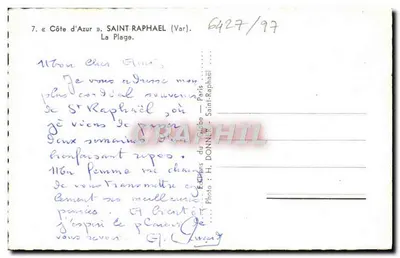 7. « Côte d'Azur ». SAINT RAPHAEL (Var).
La Plage.
6427/97
Mon Cher Ami,
Je vous adresse mon
plus cordial souvenir
de St Raphaël, où
je viens de passer
deux semaines d'un
bienfaisant repos.
Ma femme me charge
de vous transmettre
ses meilleures
pensées. A bientôt
j'espère le plaisir de
vous revoir.
Editions du - Paris
Photo H. DONN - Saint-Raphaël
CARTPHIL